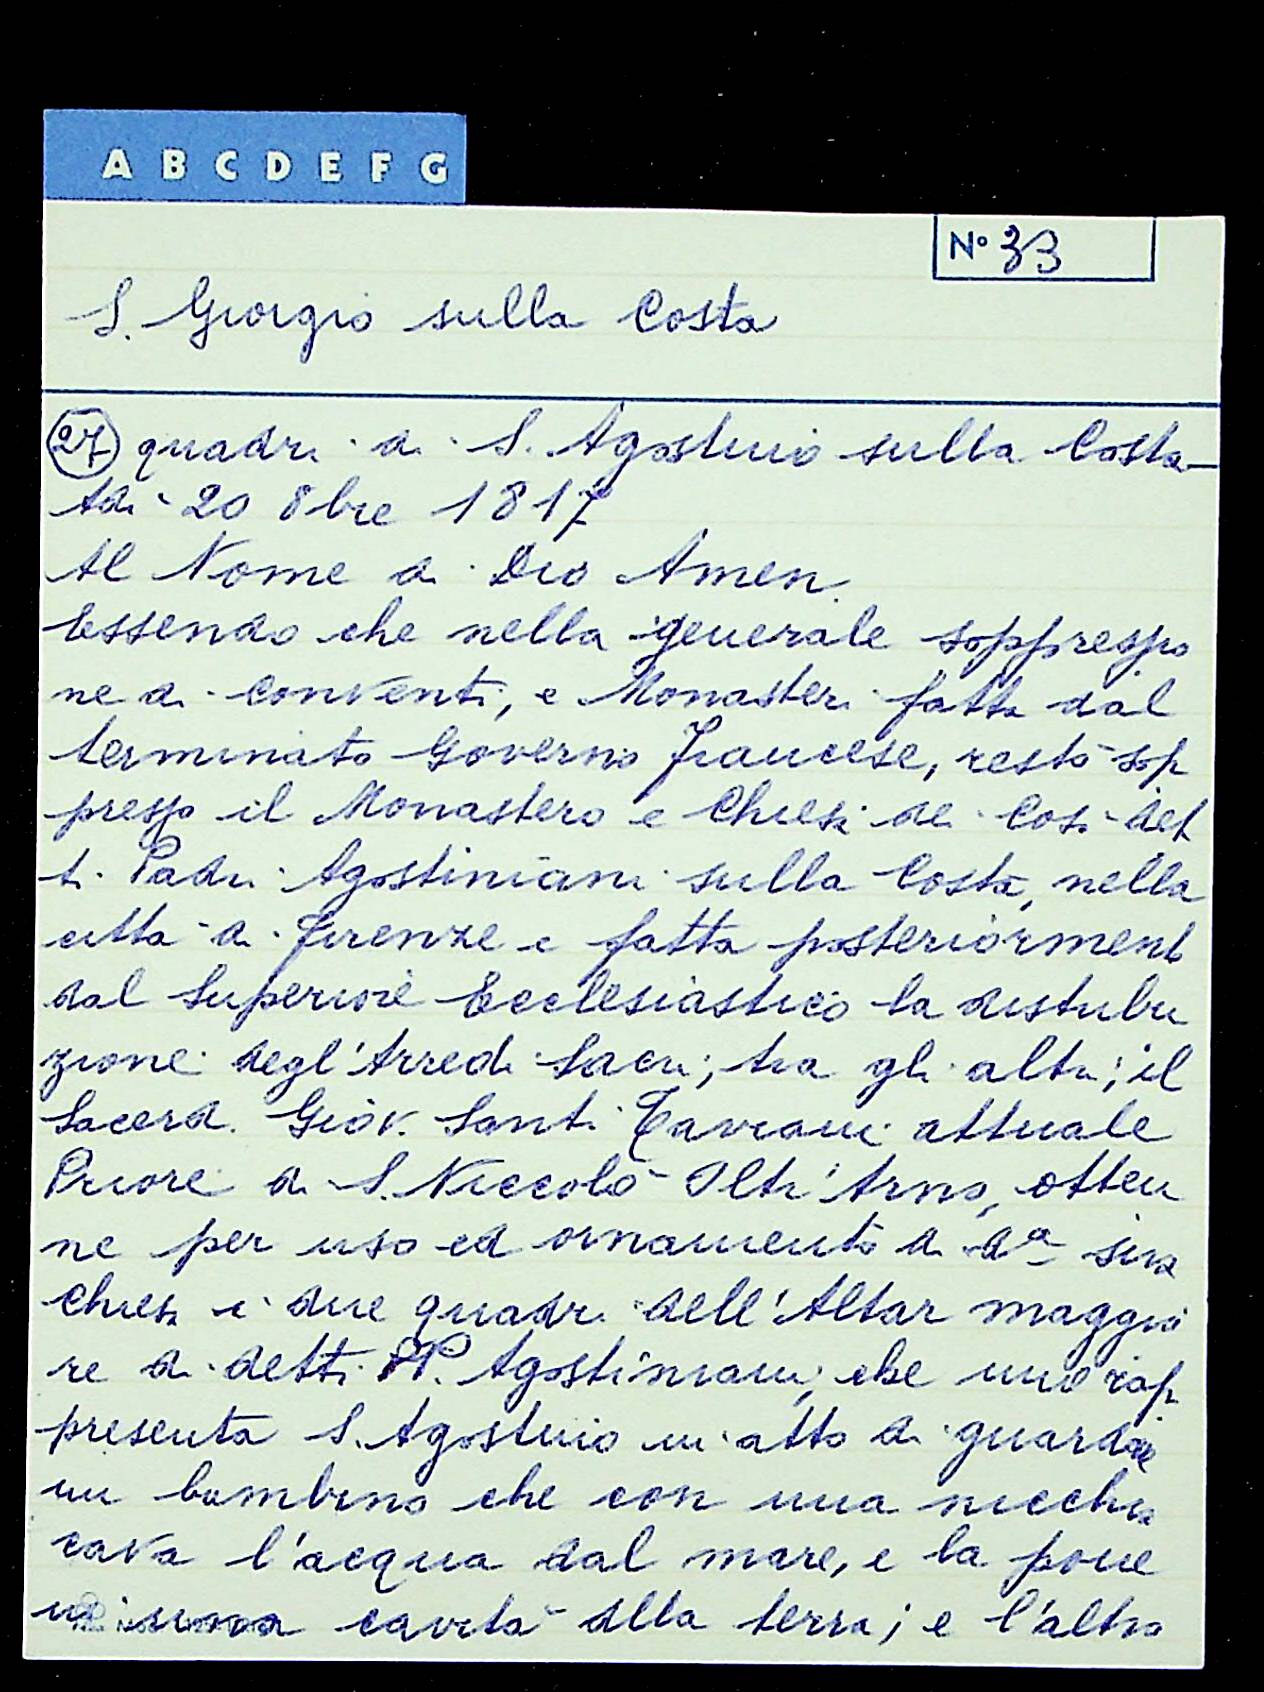 A B C D E F G
N° 33
S. Giorgio sulla Costa
27 quadri di S. Agostino sulla Costa
Adi 20 8bre 1817
Al Nome di Dio Amen.
Essendo che nella generale soppressio
ne di conventi, e Monasteri fatta dal
terminato Governo Francese, restò sop
presso il Monastero e Chiesa de Così det
ti Padri Agostiniani sulla Costa, nella
città di Firenze e fatta posteriorment
dal Superiore Ecclesiastico la distribu
zione degl'Arredi Sacri; tra gli altri; il
Sacerd. Giov. Santi Taviani attuale
Priore di S. Niccolò Oltr'Arno, otten
ne per uso ed ornamento di da sua
Chiesa i due quadri dell'Altar maggio
re di detti PP. Agostiniani, che uno rap
presenta S. Agostino in atto di guardare
un bambino che con una nicchia
cava l'acqua dal mare, e la pone
in una cavità alla terra; e l'altro